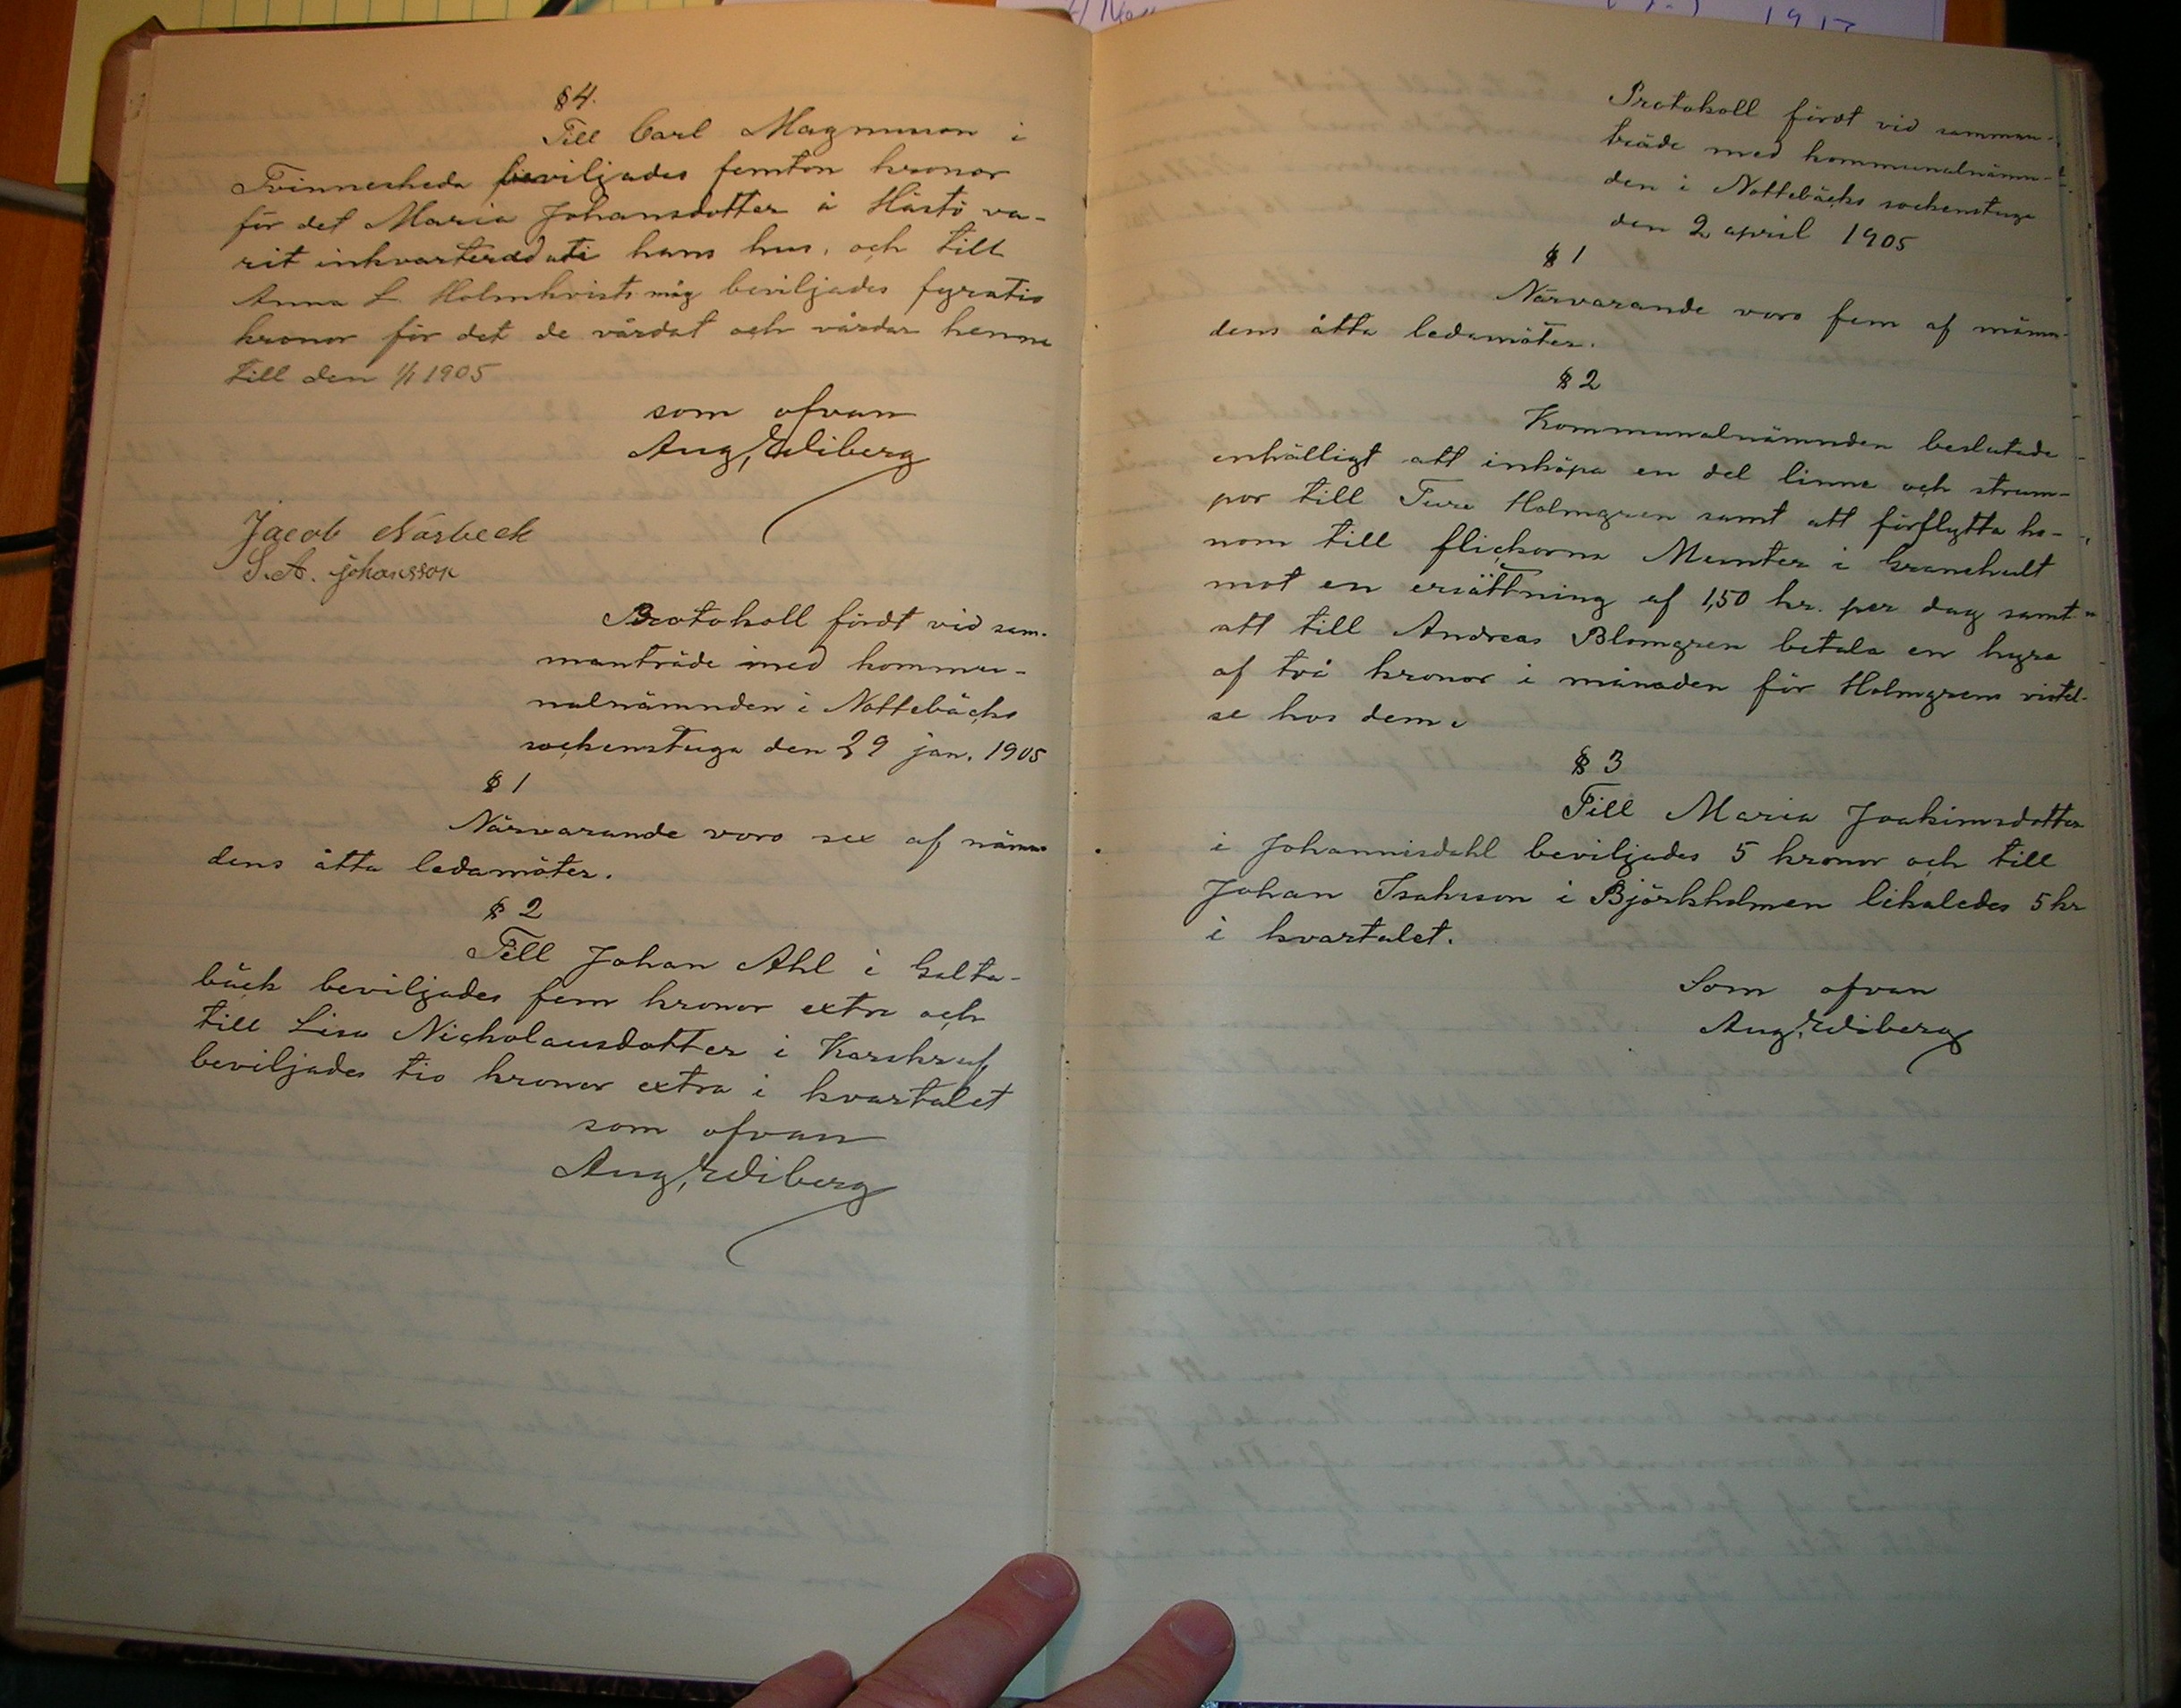 § 4.
Till Carl Magnusson i
Tvinnesheda beviljades femton kronor
för det Maria Johansdotter å Hästö va-
rit inkvarterad uti hans hus, och till
Anna L Holmkvists måg beviljades fyratio
kronor för det de vårdat och vårdar henne
till den 1/1 1905
som ofvan
Aug, Wiberg
Jacob Närbeck
S. A. Johansson
Protokoll fördt vid sam-
manträde med kommu-
nalnämnden i Nottebäcks
sockenstuga den 29 jan. 1905
§ 1
Närvarande voro sex af nämn-
dens åtta ledamöter.
§ 2
Till Johan Ahl i Galta-
bäck beviljades fem kronor extra och
till Lisa Nicholausdotter i
beviljades tio kronor extra i kvartalet
som ofvan
Aug, Wiberg
Protokoll fördt vid samman-
träde med kommunalnämn-
den i Nottebäcks sockenstuga
den 2 april 1905
§ 1
Närvarande voro fem af nämn-
dens åtta ledamöter.
§ 2
Kommunalnämnden beslutade
enhälligt att inköpa en del linne och strum-
por till Ture Holmgren samt att förflytta ho-
nom till flickorna Munter i Granhult
mot en ersättning af 1,50 kr. per dag samt
att till Andreas Blomgren betala en hyra
af två kronor i månaden för Holmgrens vistel-
se hos dem.
§ 3
Till Maria Joakimsdotter
i Johannisdahl beviljades 5 kronor och till
Johan Isakson i Björkholmen likaledes 5 kr
i kvartalet.
Som ofvan
Aug, Wiberg